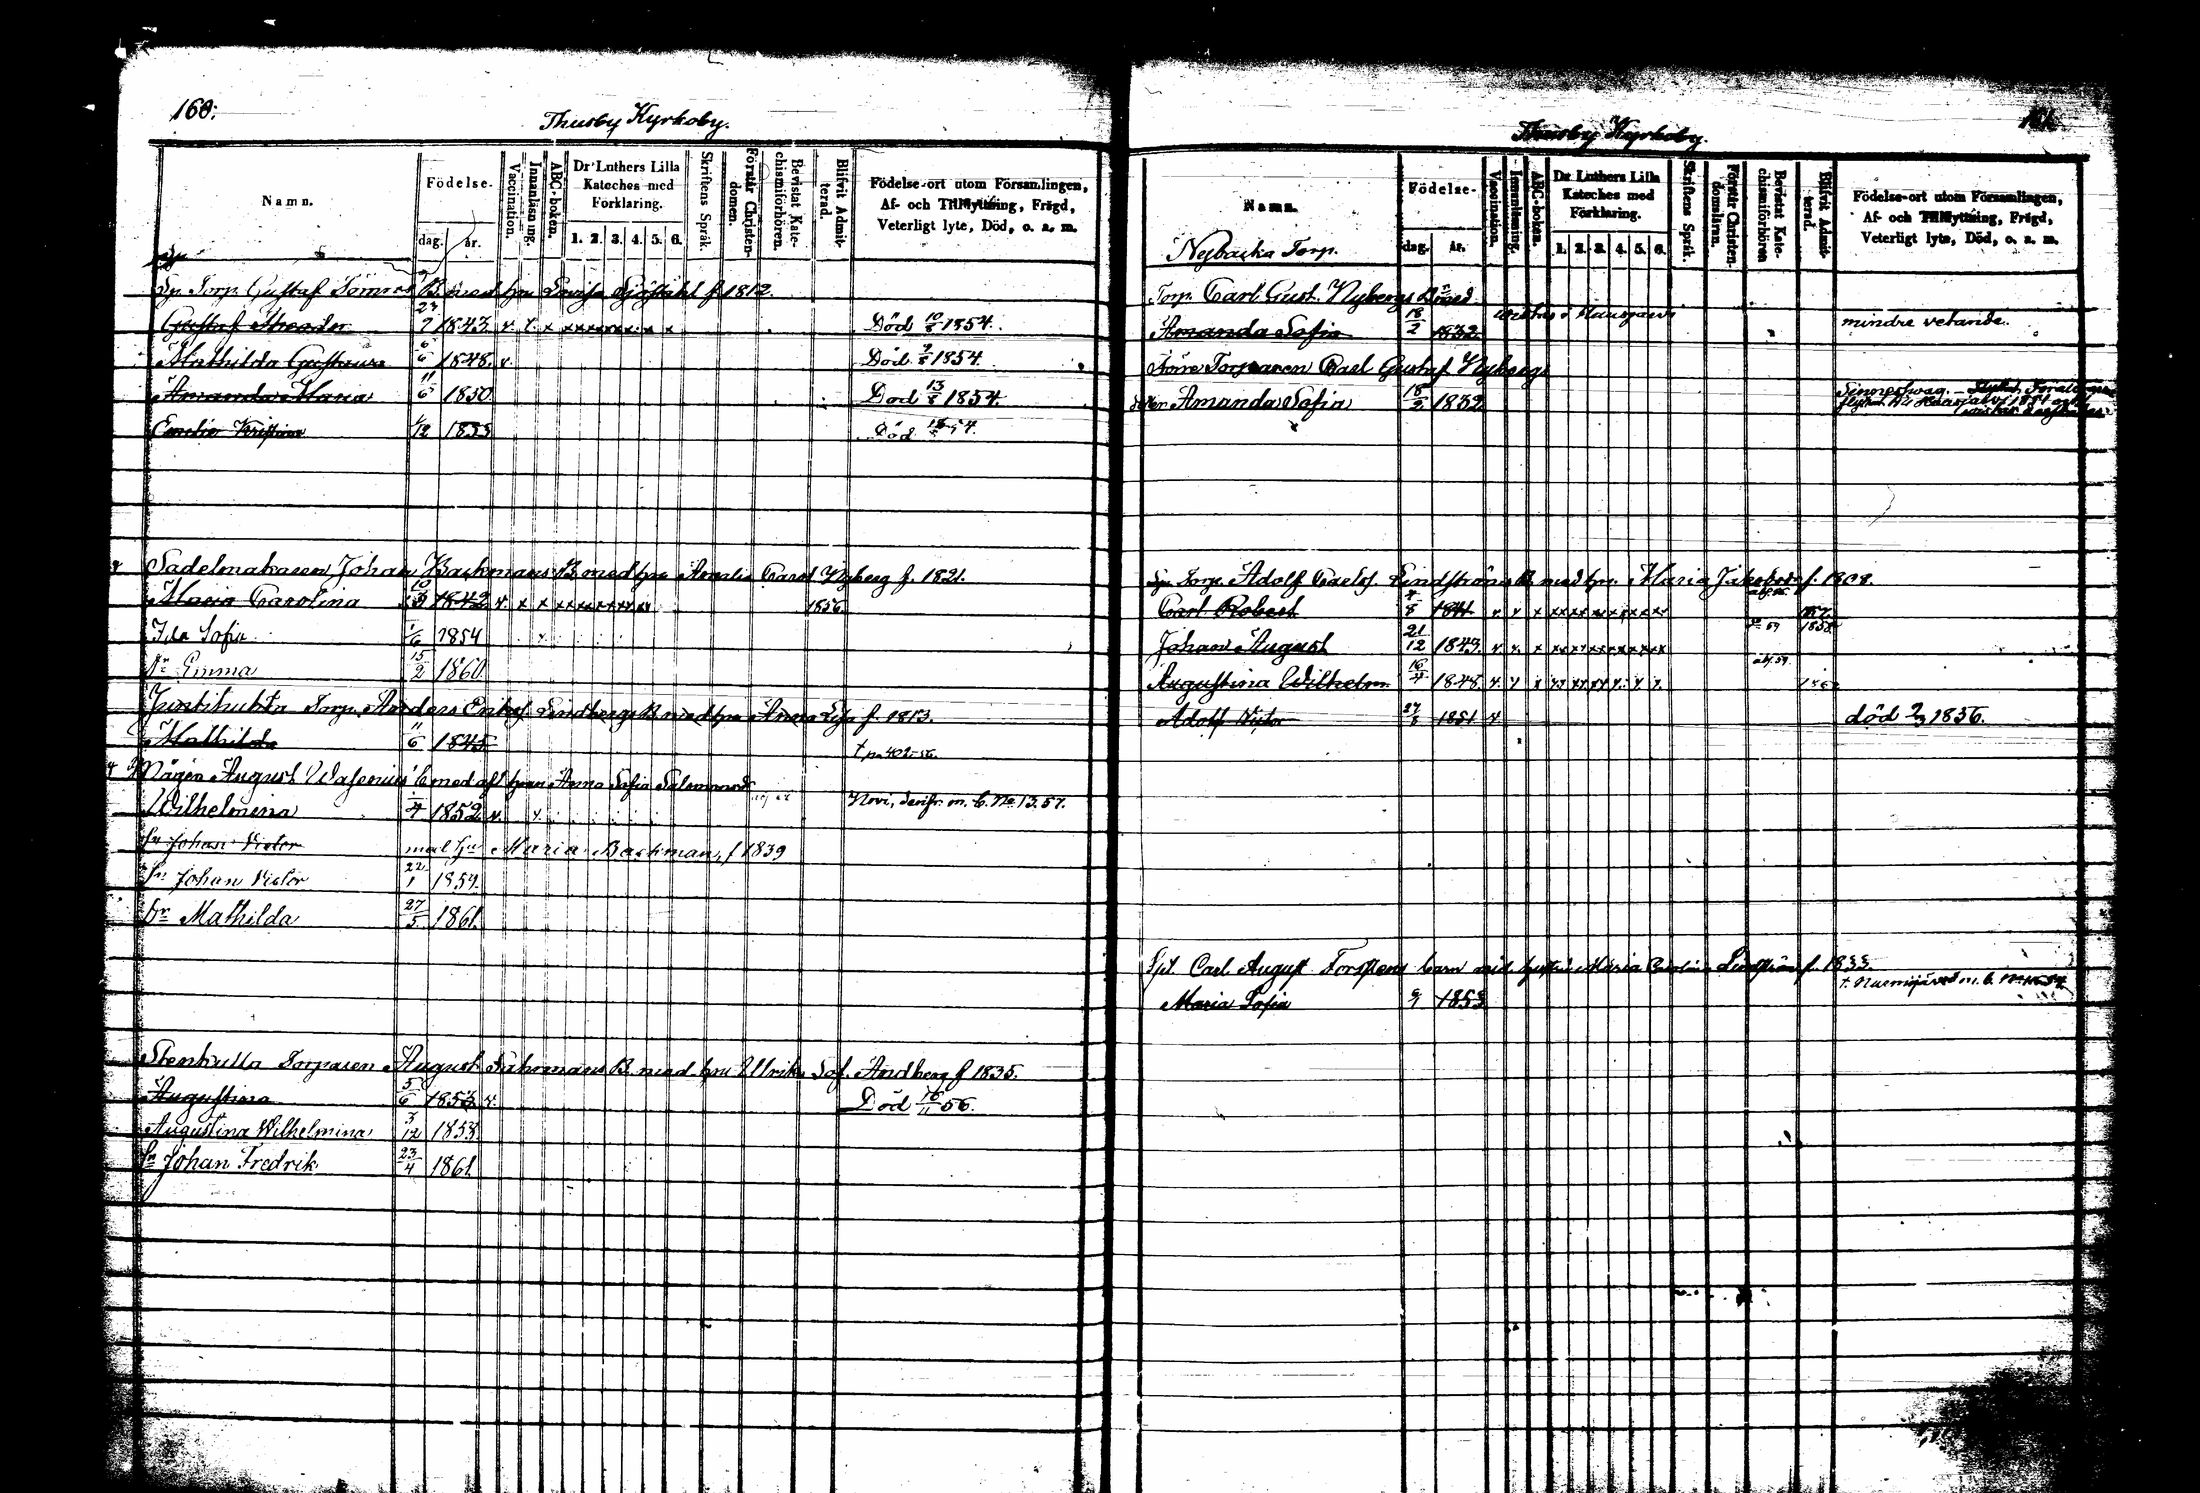 160:
Thusby Kyrkoby.
Namn.
Födelse-
dag.
år.
Vaccination.
Innanläsning.
ABC-boken.
Dr Luthers Lilla Kateches med Förklaring.
1. 2. 3. 4. 5. 6.
Skriftens Språk.
Förstår Christen-domen.
Bevistat Kate-chismiförhören.
Blifvit Admit-terad.
Födelse-ort utom Församlingen, Af- och Tillflyttning, Frägd, Veterligt lyte, Död, o. s. m.
Torp. Gustaf B. med hru Lovisa Sjöståhl f 1812.
Gustaf 23/7 1843 v. Död 10/8 1854.
Mathilda Gustava 6/6 1848. v. Död 7/8 1854
Amanda Maria 11/6 1850 Död 13/8 1854.
Emelie Kristina 1/12 1853 Död 54.
Sadelmakaren Johan Backmans B. med hru Amalia Carol. Nyberg f. 1821.
Maria Carolina 1842 v. x x 1856
Ida Sofia 1/6 1854
Dr Emma 15/2 1860
Torp. Anders Lindbergs B med hru Anna Lisa f. 1813.
Mathilda 11/6 1845 t. p. 402-56.
August Wasenius' b med afl. hru Anna Sofia
Wilhelmina 1/4 1852 v. Novi, m. b. No 13. 57.
Sn Johan Victor med hu Maria Backman, f 1839
Sn Johan Victor 22/1 1859.
Dr Mathilda 27/5 1861.
Stenkulla Torparen August B. med hru Ulrika Sof. Andberg f 1835.
Augustina 5/6 1853 v. Död 16/11 56.
Augustina Wilhelmina 3/12 1858
Sn Johan Fredrik 23/4 1861
161.
Thusby Kyrkoby.
Namn.
Nybacka Torp.
Födelse-
dag.
År.
Vaccination.
Innanläsning.
ABC-boken.
Dr Luthers Lilla Kateches med Förklaring.
1. 2. 3. 4. 5. 6.
Skriftens Språk.
Förstår Christen-domsläran.
Bevistat Kate-chismiförhören
Blifvit Admit-terad.
Födelse-ort utom Församlingen, Af- och Tillflyttning, Frägd, Veterligt lyte, Död, o. s. m.
Torp. Carl Gust. Nybergs B med
Amanda Sofia 18/2 1832. mindre vetande.
Förre Torparen Carl Gustaf Nybergs
dotter Amanda Sofia 18/2 1832
Torp. Adolf Carlss. Lindströms B. med hru. Maria Jakobsdr f. 1808.
Carl Robert 1841 v x x 1857.
Johan August 21/12 1843. v. x. x 59 1858
Augustina Wilhelm. 16/4 1848. v. x x
Adolf Victor 27/8 1851. v död 1856.
Carl August Forstens barn med hustru Maria Carolina Lindström f. 1833.
Maria Sofia 1853 t. Nurmijärvi m. b.